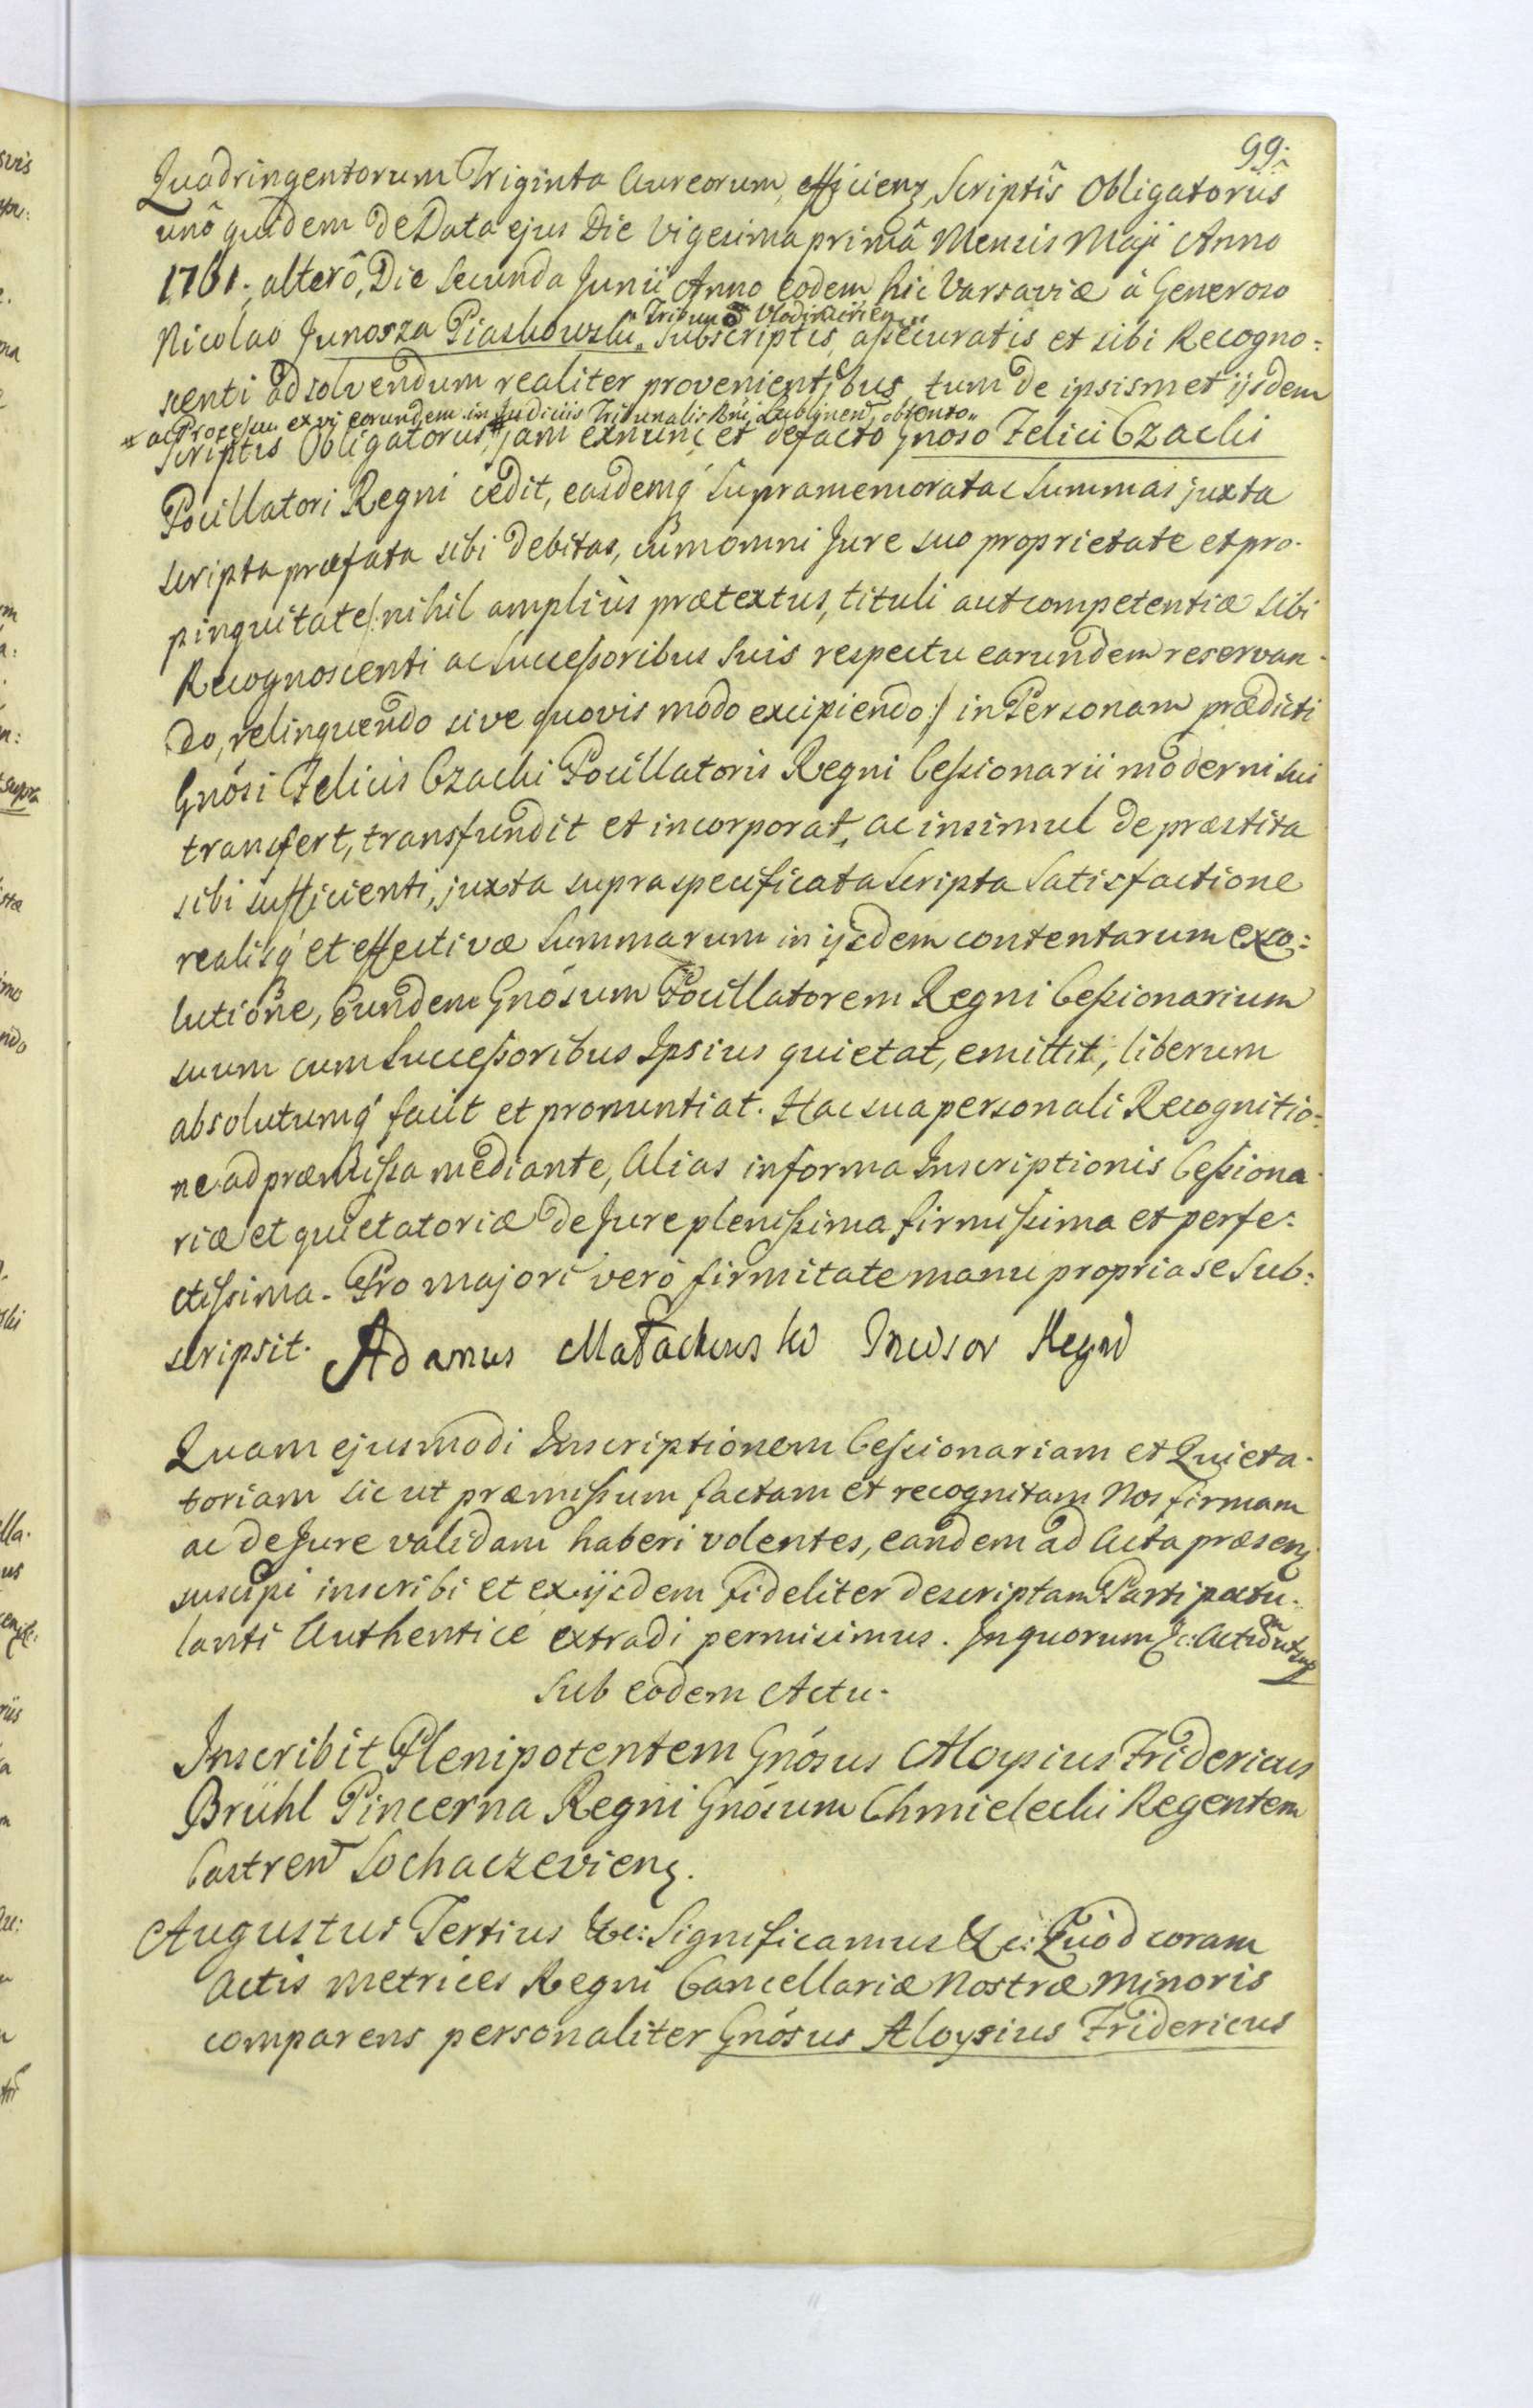 99.
Quadringentorum Triginta Aureorum, efficienꝫ Scriptis Obligatoriis
unô quidem de Data ejus Die Vigesima primâ Mensis Maji Anno
1761. alterô, Die Secunda Junii Anno eodem hic Varsaviæ â Generoso
" Tribuno Vlodimirien "
Nicolao Junosza Piaskowski " Subscriptis, aßecuratis et sibi Recogno:
scenti ad solvendum realiter provenientibus, tum de ipsismet ijsdem
* ac Processu ex vi eorundem in Judiciis Tribunalis Rni Lublinen obtento "
Scriptis Obligatoriis, * jam exnunc et defacto Gnoso Felici Czacki
Pocillatori Regni cedit, easdemq́ Supramemoratas Summas juxta
scripta præfata sibi debitas, cum omni Jure suo proprietate et pro-
pinquitate /: nihil amplius prætextus, tituli aut competentiæ sibi
Recognoscenti ac Succeßoribus Suis respectu earundem reservan-
do, relinquendo sive quovis modo excipiendo :/ in Personam prædicti
Gnósi Felicis Czacki Pocillatoris Regni Ceßionarii moderni sui
transfert, transfundit et incorporat, ac insimul de præstita
sibi sufficienti, juxta supra specificata Scripta Satisfactione
realisq́ et effectivæ Summarum in ijsdem contentarum exo:
lutione, Eundem Gnósum Pocillatorem Regni Ceßionarium
suum cum Succeßoribus Ipsius quietat, emittit, liberum
absolutumq́ facit et pronuntiat. Hac sua personali Recognitio:
ne ad præmißa mediante, Alias in forma Inscriptionis Ceßiona-
riæ et quietatoriæ de Jure plenißima firmißima et perfe:
ctißima. Pro majori verò firmitate manu propria se Sub:
scripsit. Adamus Małachowski Incisor Regni
Quam ejusmodi Inscriptionem Ceßionariam et Quieta-
toriam sicut præmißum factam et recognitam Nos firmam
ac de Jure validam haberi volentes, eandem ad Acta præsenꝫ
suscipi inscribi et ex ijsdem fideliter descriptam Parti postu-
lanti Authentice extradi permisimus. In quorum &c: Actum ut sup
Sub eodem Actu.
Inscribit Plenipotentem Gnósus Aloysius Fridericus
Brühl Pincerna Regni Gnósum Chmielecki Regentem
Castren Sochaczevienꝫ.
Augustus Tertius &c: Significamus &c: Quòd coram
Actis Metrices Regni Cancellariæ Nostræ Minoris
comparens personaliter Gnósus Aloysius Fridericus